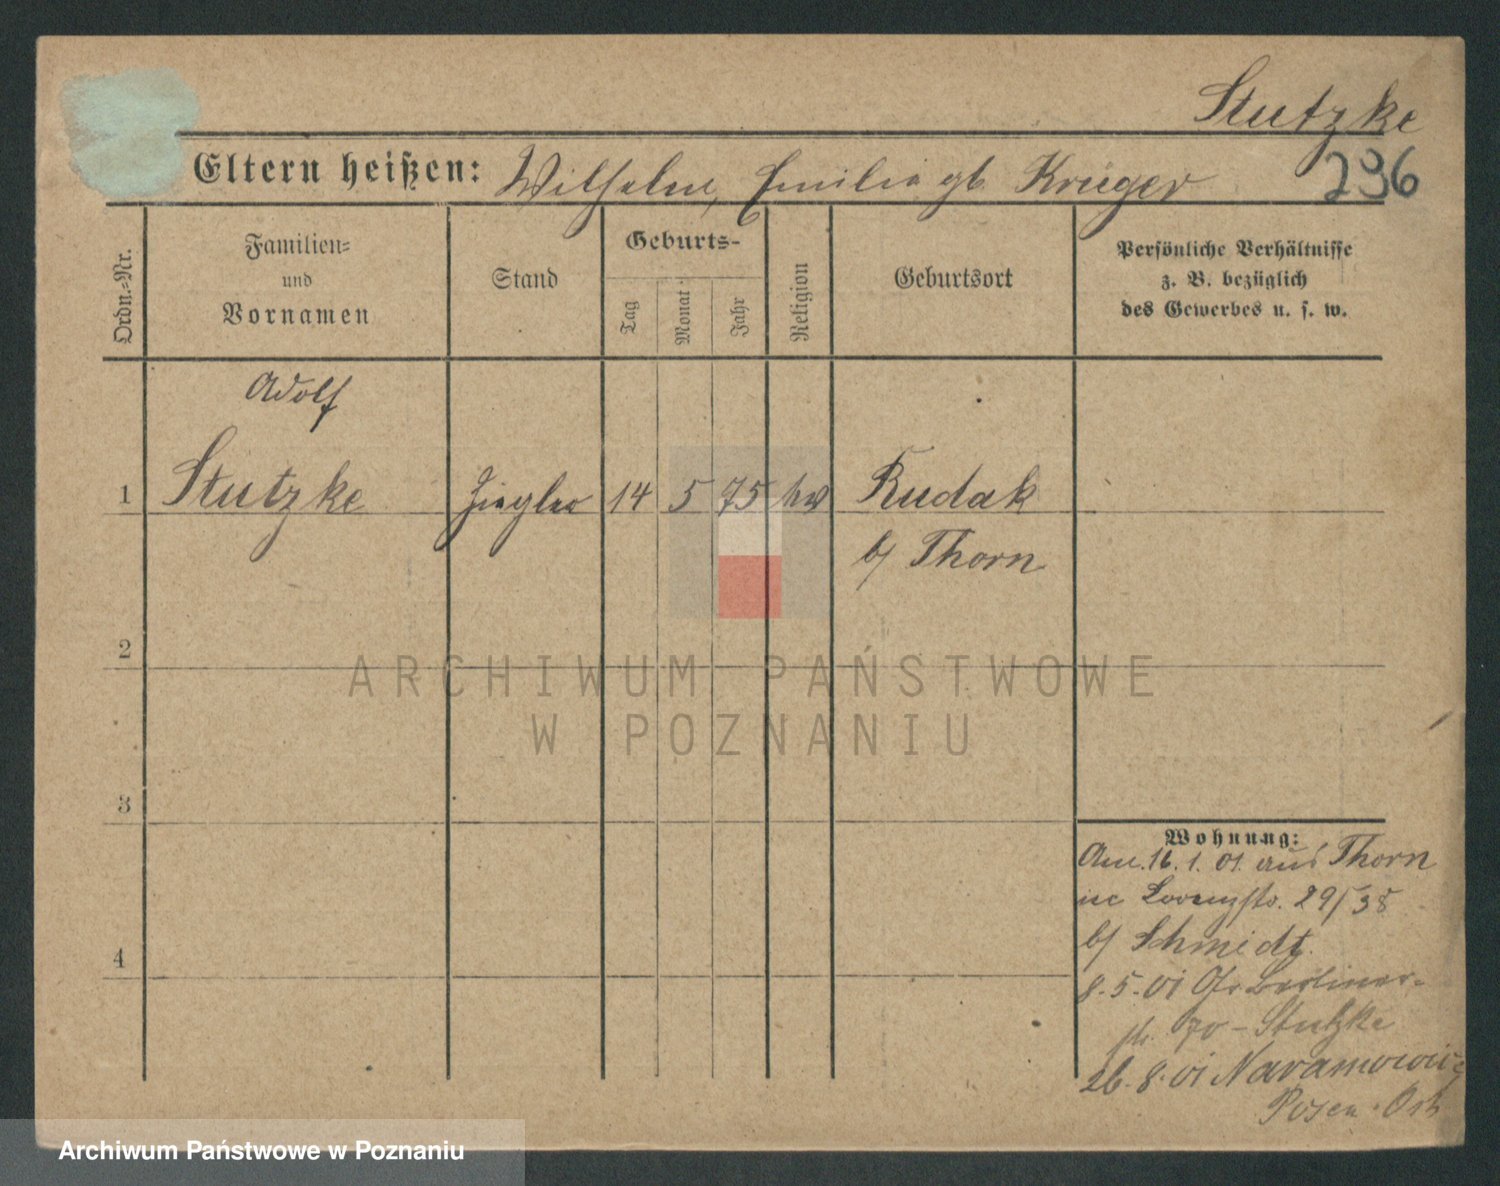 Stutzke
Eltern heißen: Wilhelm, Emilie gb. Krüger 236
Ordn.-Nr.
Familien-
und
Vornamen
Stand
Geburts-
Tag
Monat
Jahr
Religion
Geburtsort
Persönliche Verhältnisse
z. B. bezüglich
des Gewerbes u. s. w.
Adolf
1 Stutzke Ziegler 14 5 75 Rudak
b/ Thorn
2
3
4
Wohnung:
16. 1. 01. aus Thorn
Lorenzstr. 29/38
b/ Schmidt.
8. 5. 01 Gr. Berliner-
str. 70 - Stutzke
26. 8. 01 Naramowice
Posen. Ost
ARCHIWUM PAŃSTWOWE
W POZNANIU
Archiwum Państwowe w Poznaniu